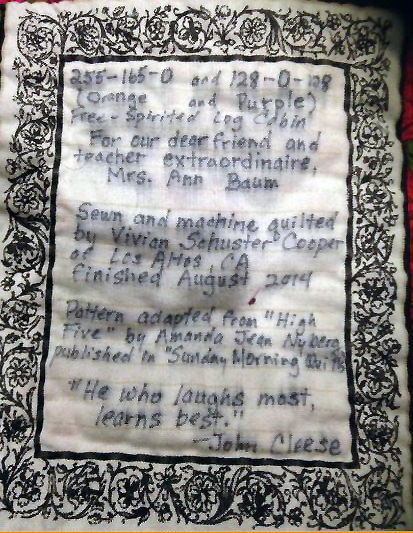 255-165-0 and 128-0-128
(Orange and Purple)
Free-Spirited Log Cabin
For our dear friend and
teacher extraordinaire,
Mrs. Ann Baum
Sewn and machine quilted
by Vivian Schuster Cooper
of Los Altos, CA
finished August 2014
Pattern adapted from "High
Five" by Amanda Jean Nyberg
published in "Sunday Morning Quilts
"He who laughs most,
learns best."
—John Cleese